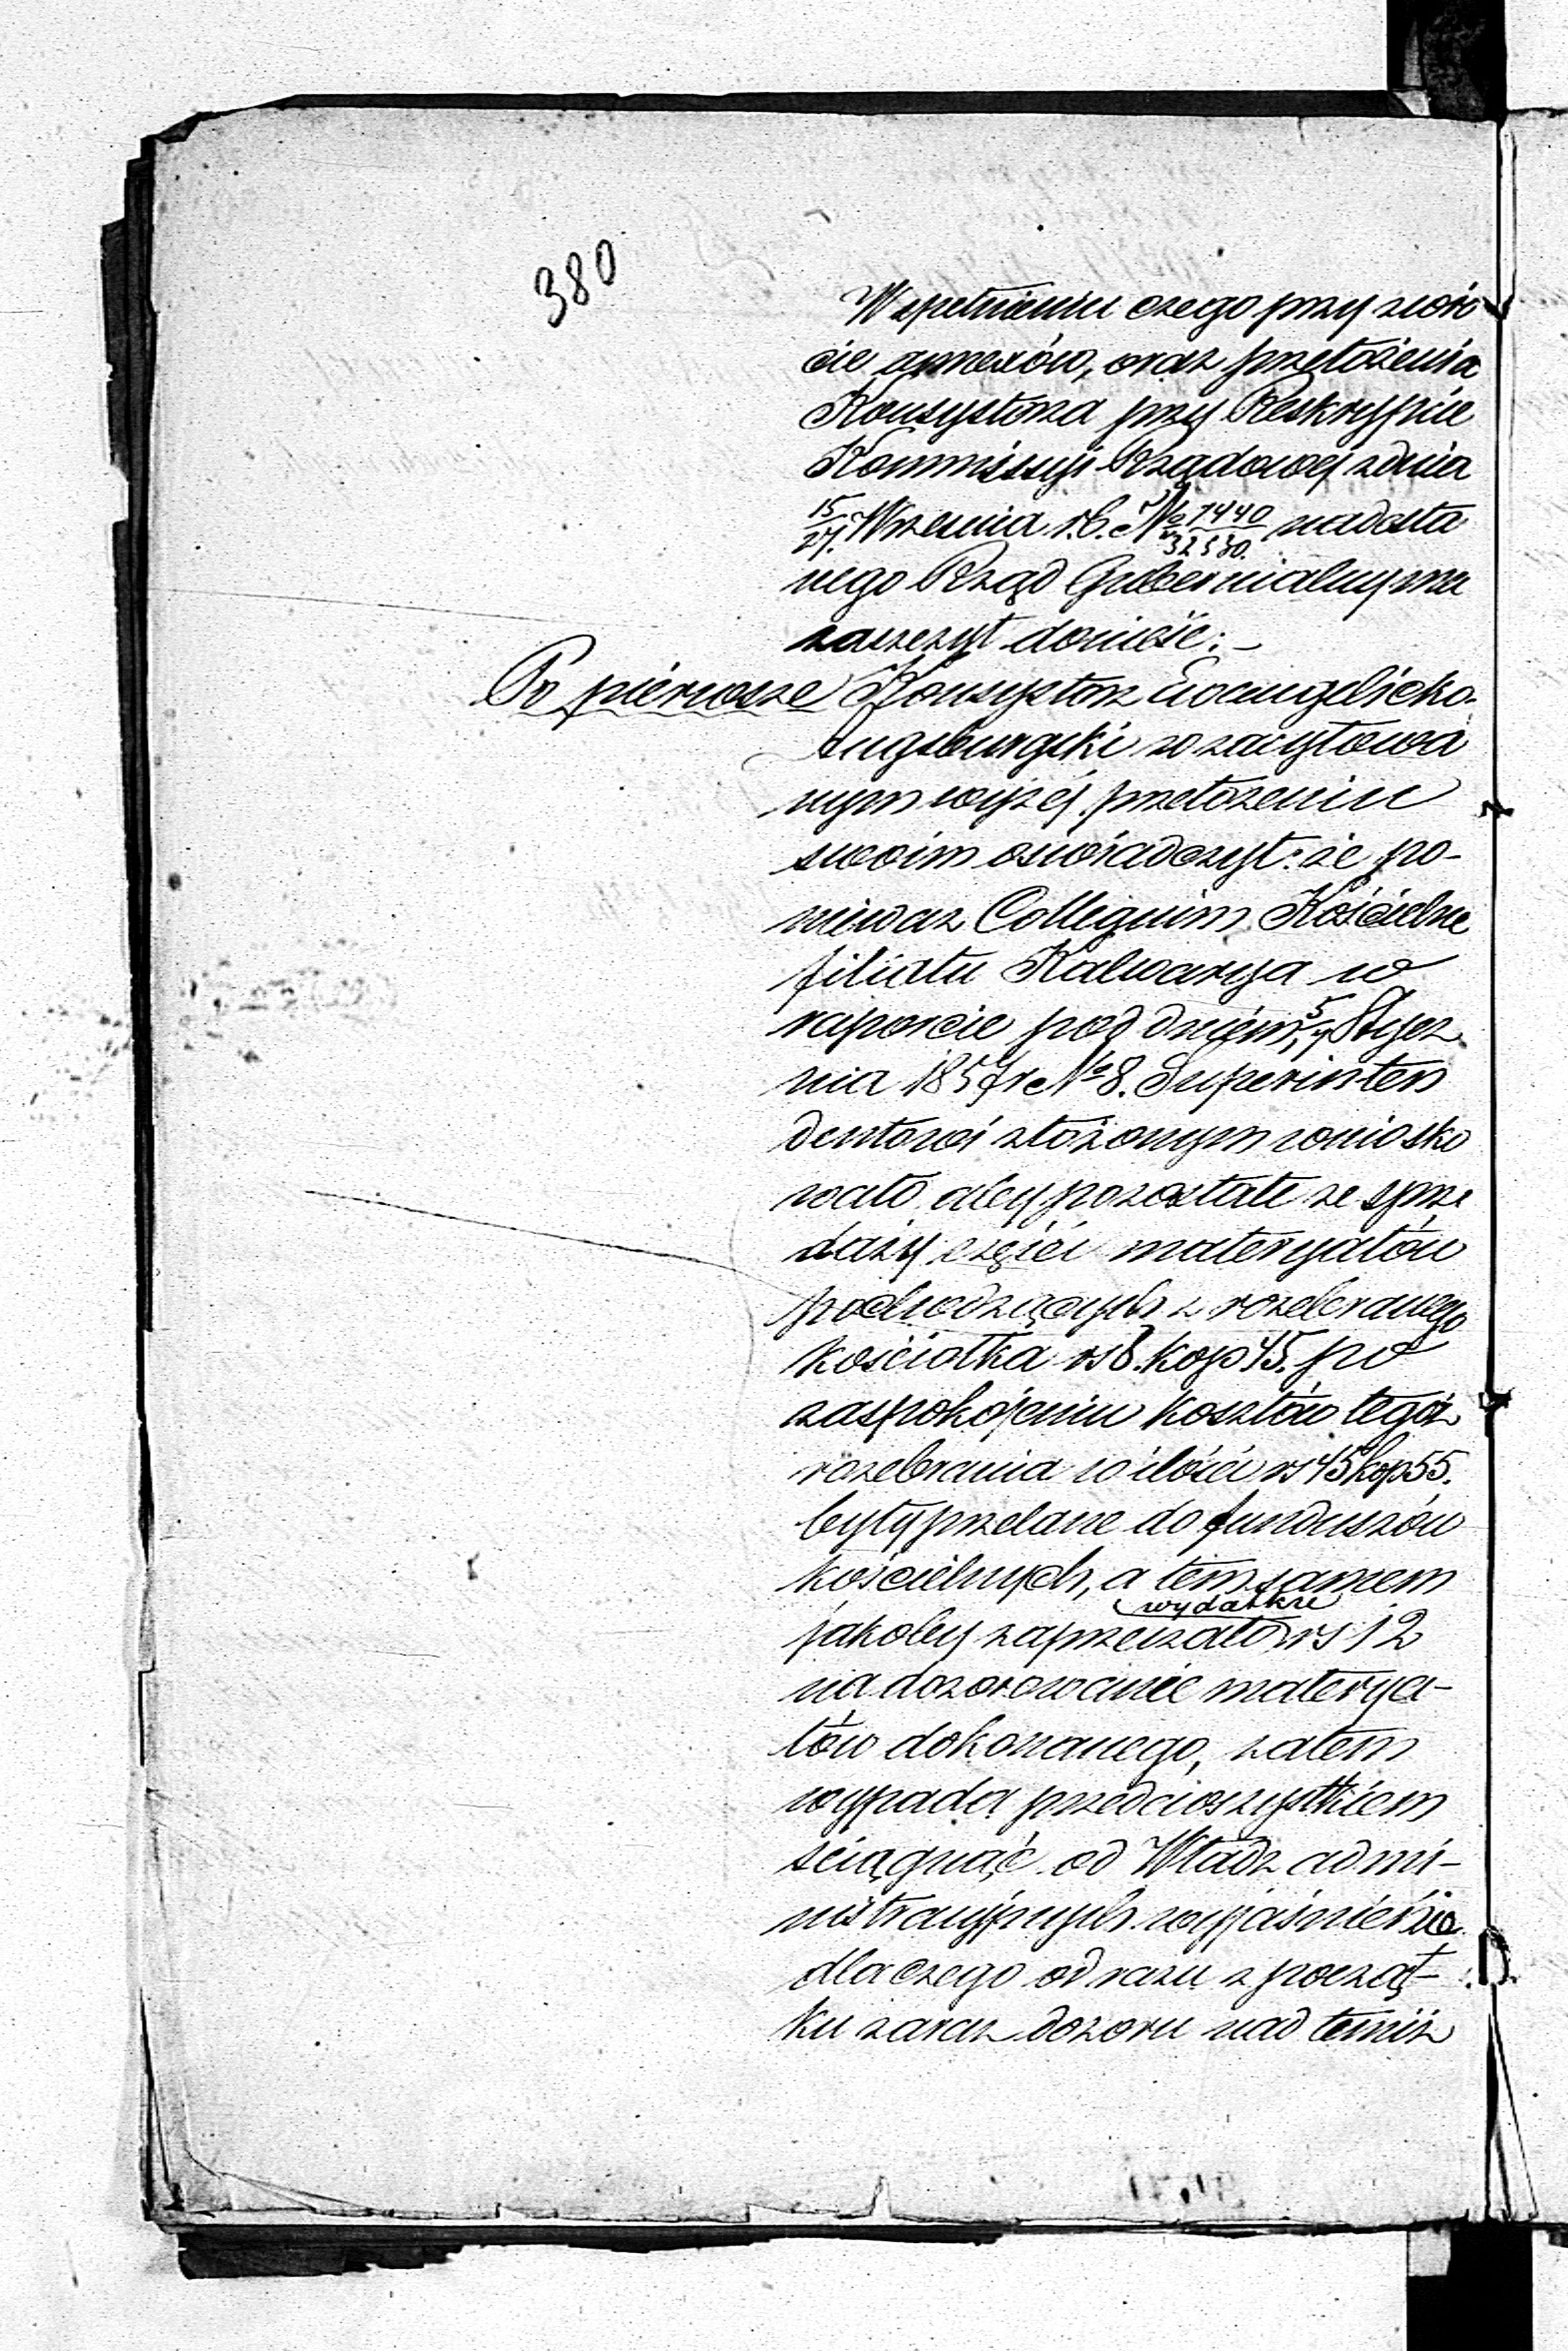 380
W spełnieniu czego przy zwró
cie annexów, oraz przełożenia
Konsystorza przy Reskrypcie
Kommissyi Rządowej z dnia
15/27. Września r.b. № 1440/32530. nadesła
nego Rząd Gubernialny ma
zaszczyt donieść: –
Po pierwsze Konsystorz Ewangelicko-
Augsburgski w zacytowa
nym wyżéj przełożeniu
swoim oświadczył: że po-
nieważ Collegium Kościelne
filiału Kalwarya w
raporcie pod dniem 5/17 Stycz
nia 1857 r № 8. Superinten
dentowi złożonym wniosko
wało, aby pozostałe ze sprze
daży części materyałów
pochodzących z rozebranego
kościołka rs 8. kop 45. po
zaspokojeniu kosztów tegoż
rozebrania w ilości rs 45 kop 55.
były przelane do funduszów
kościelnych, a tem samem
wydatku
jakoby zaprzeczało rs 12
na dozorowanie materya-
łów dokonanego, zatem
wypada przedewszystkiem
ściągnąć od Władz admi-
nistracyjnych wyjaśnienie
dlaczego od razu z począt-
ku zaraz dozoru nad temiż